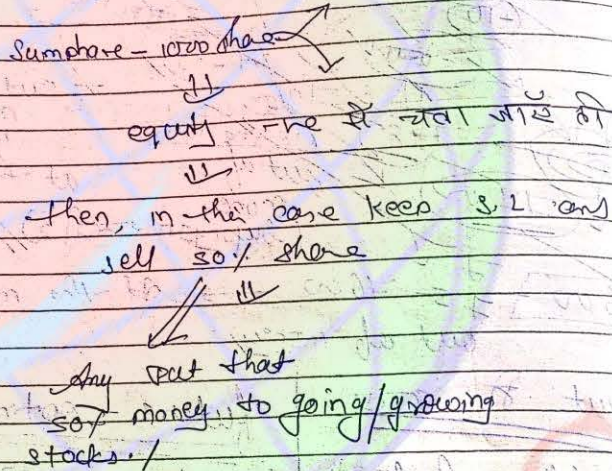 Sumphare - 1000 share
equity -ve में चला जाएँ तो
then, in the case keep S.L and
sell 50% share
Any put that
50% money to going/growing
stocks.